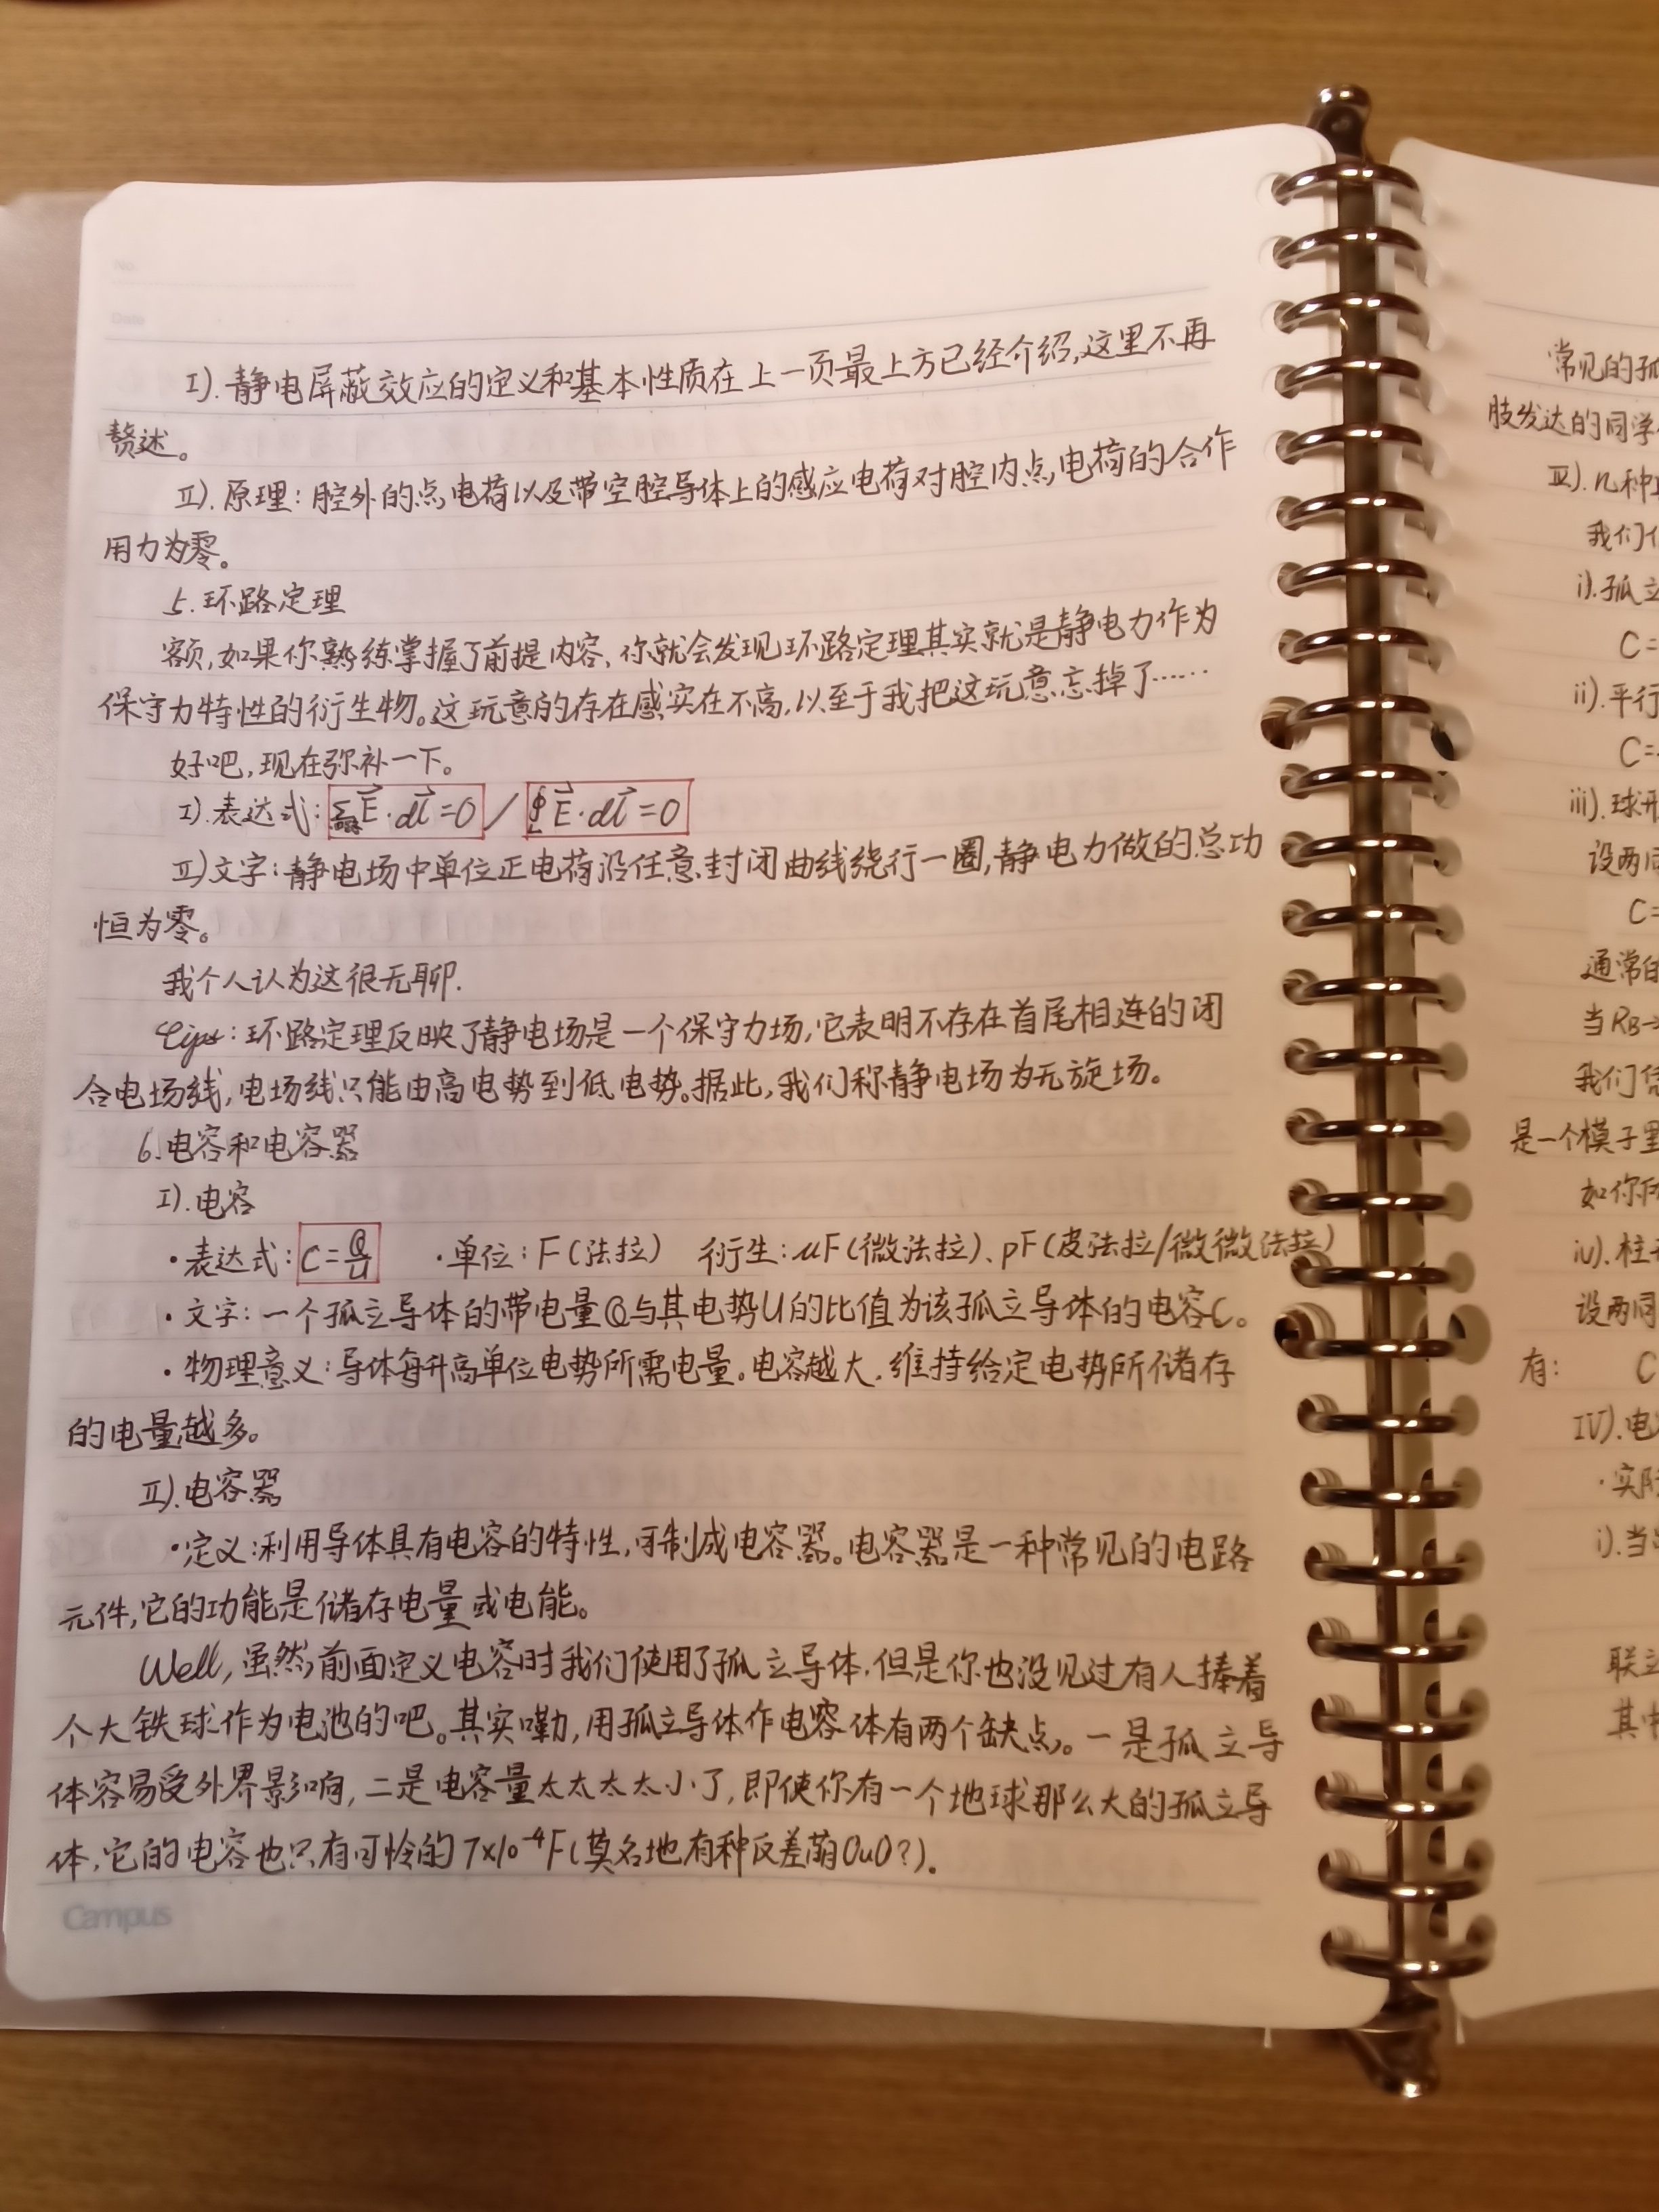 No.
Date
I).静电屏蔽效应的定义和基本性质在上一页最上方已经介绍,这里不再
赘述。
II).原理:腔外的点电荷以及带空腔导体上的感应电荷对腔内点电荷的合作
用力为零。
5.环路定理
额,如果你熟练掌握了前提内容,你就会发现环路定理其实就是静电力作为
保守力特性的衍生物。这玩意的存在感实在不高,以至于我把这玩意忘掉了……
好吧,现在弥补一下。
I).表达式: E⃗·dl⃗=0 / ∮L E⃗·dl⃗=0
II)文字:静电场中单位正电荷沿任意封闭曲线绕行一圈,静电力做的总功
恒为零。
我个人认为这很无聊.
Tips:环路定理反映了静电场是一个保守力场,它表明不存在首尾相连的闭
合电场线,电场线只能由高电势到低电势。据此,我们称静电场为无旋场。
6.电容和电容器
I).电容
·表达式:C=Q/U ·单位:F(法拉) 衍生:μF(微法拉)、pF(皮法拉/微微法拉)
·文字:一个孤立导体的带电量Q与其电势U的比值为该孤立导体的电容C。
·物理意义:导体每升高单位电势所需电量。电容越大,维持给定电势所储存
的电量越多。
II).电容器
·定义:利用导体具有电容的特性,可制成电容器。电容器是一种常见的电路
元件,它的功能是储存电量或电能。
Well,虽然前面定义电容时我们使用了孤立导体,但是你也没见过有人捧着
个大铁球作为电池的吧。其实嘞,用孤立导体作电容体有两个缺点。一是孤立导
体容易受外界影响,二是电容量太太太太小了,即使你有一个地球那么大的孤立导
体,它的电容也只有可怜的7×10⁻⁴F(莫名地有种反差萌OuO?)。
Campus
常见的孤
肢发达的同学
III).几种
我们
i).孤立
C=
ii).平行
C=
iii).球形
设两同
C=
通常的
当RB→
我们
是一个模子里
如你所
iv).柱
设两同
有: C
IV).电
·实际
i).当
联立
其中